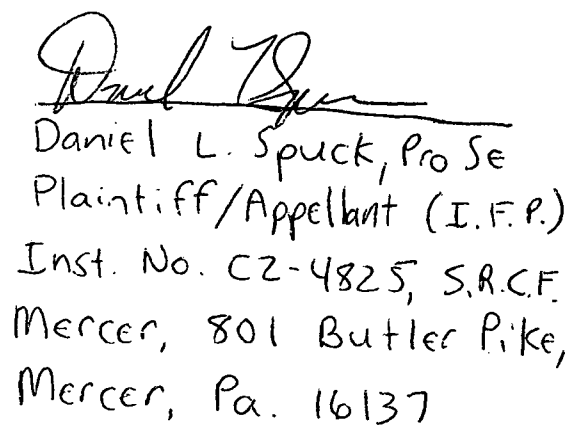 Daniel L. Spuck, Pro Se
Plaintiff/Appellant (I.F.P.)
Inst. No. CZ-4825, S.R.C.F.
Mercer, 801 Butler Pike,
Mercer, Pa. 16137